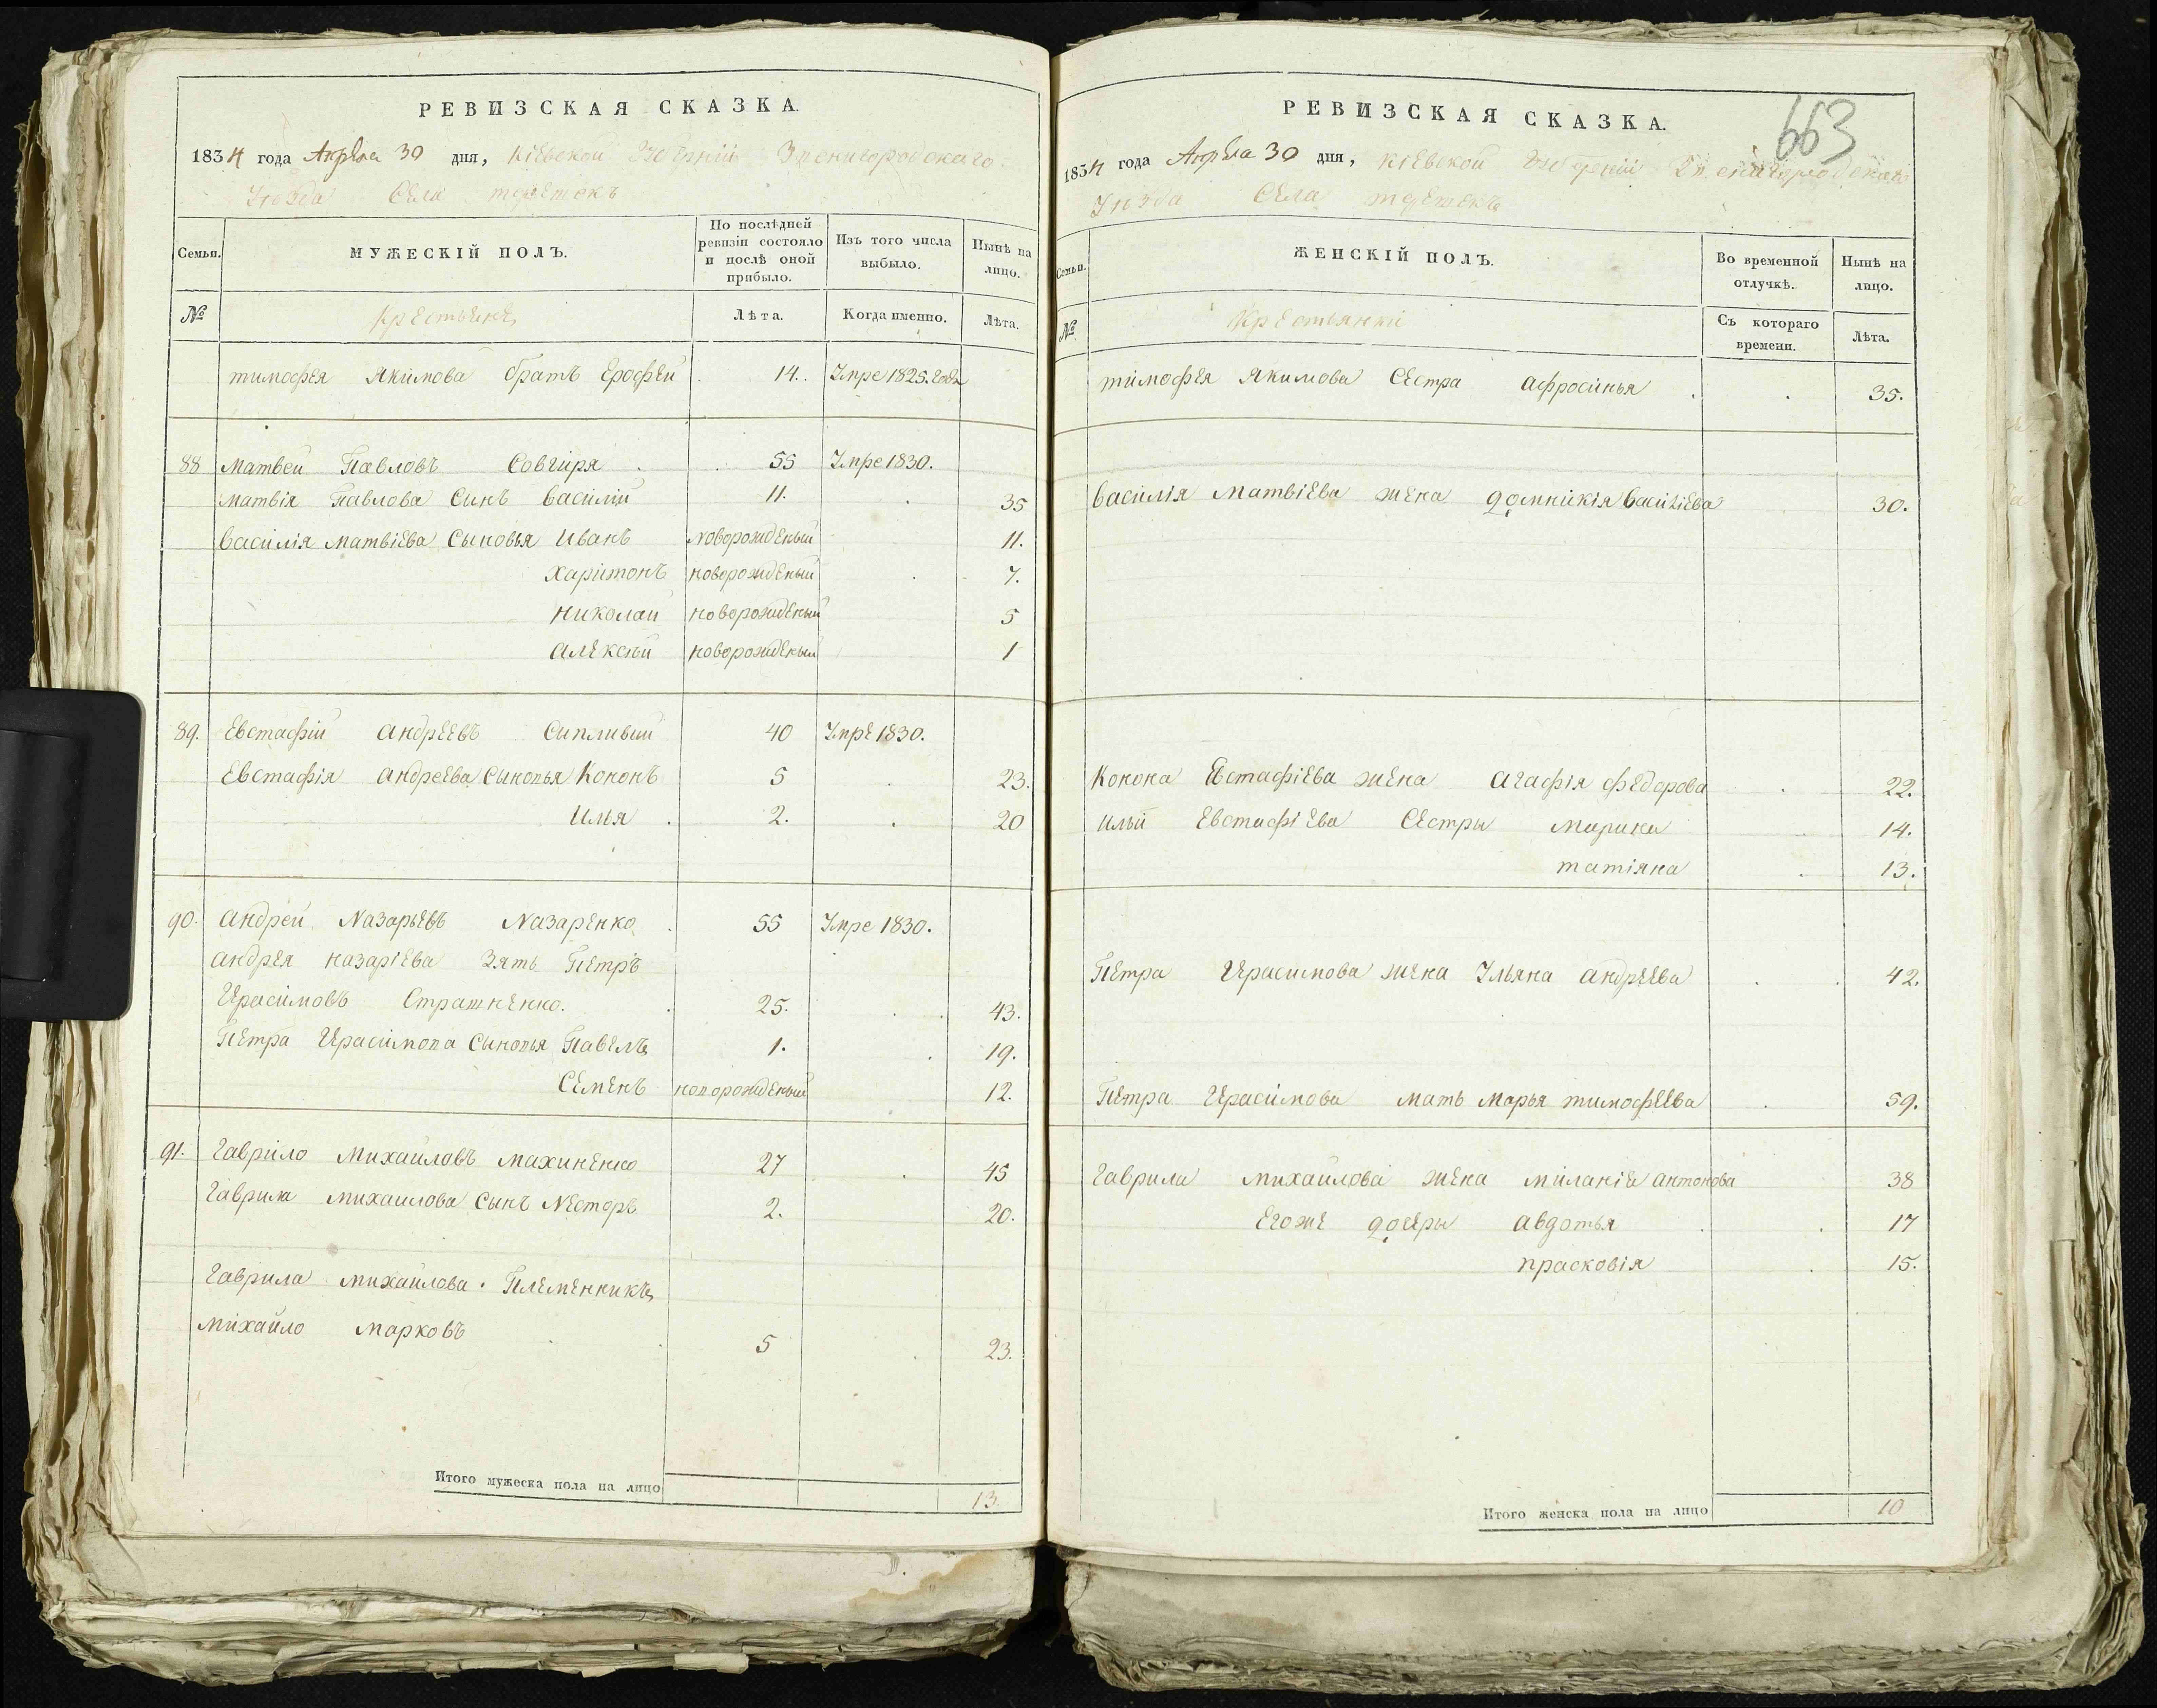 РЕВИЗСКАЯ СКАЗКА.
1834 года Апреля 30 дня, Кіевской Губерніи Звенигородскаго
Уѣзда Села
Семьи.
МУЖЕСКІЙ ПОЛЪ.
По послѣдней ревизіи состояло и послѣ оной прибыло.
Изъ того числа выбыло.
Нынѣ на лицо.
№
Крестьяне
Лѣта.
Когда именно.
Лѣта.
тимофея Якимова братъ Ерофей 14. Умре 1825. года
88 Матвей Павловъ Совгиря 55 Умре 1830.
Матвія Павлова Синъ Василій 11. 35
Василія Матвіева Сыновья Иванъ новорожденый 11.
Харитонъ новорожденый 7.
Николай новорожденый 5
Алексѣй новорожденый 1
89. Евстафій Андреевъ Сипливый 40 Умре 1830.
Евстафія Андреева Сыновья Кононъ 5 23.
Илья 2. 20
90. Андрей Назарьевъ Назаренко 55 Умре 1830.
Андрея Назаріева Зять Петръ
Герасимовъ Страшненко. 25. 43.
Петра Герасимова Сыновья Павелъ 1. 19.
Семенъ новорожденый 12.
91. Гаврило Михайловъ Махиненко 27 45
Гаврила Михайлова Сынъ Несторъ 2. 20.
Гаврила Михайлова Племенникъ
Михайло Марковъ 5 23.
Итого мужеска пола на лицо 13.
663
РЕВИЗСКАЯ СКАЗКА.
1834 года Апреля 30 дня, Кіевской Губерніи Звенигородскаго
Уѣзда Села
Семьи.
ЖЕНСКІЙ ПОЛЪ.
Во временной отлучкѣ.
Нынѣ на лицо.
№
Крестьянки
Съ котораго времени.
Лѣта.
тимофея Якимова Сестра Афросинья 35.
Василія Матвіева жена Домникія Василіева 30.
Конона Евстафіева жена Агафія Федорова 22.
Ильи Евстафіева Сестры Марина 14.
татіяна 13.
Петра Герасимова жена Ульяна Андреева 42.
Петра Герасимова мать Марья тимофеева 59.
Гаврила Михайлова жена Миланія Антонова 38
Егоже дочеры Авдотья 17
Прасковія 15.
Итого женска пола на лицо 10